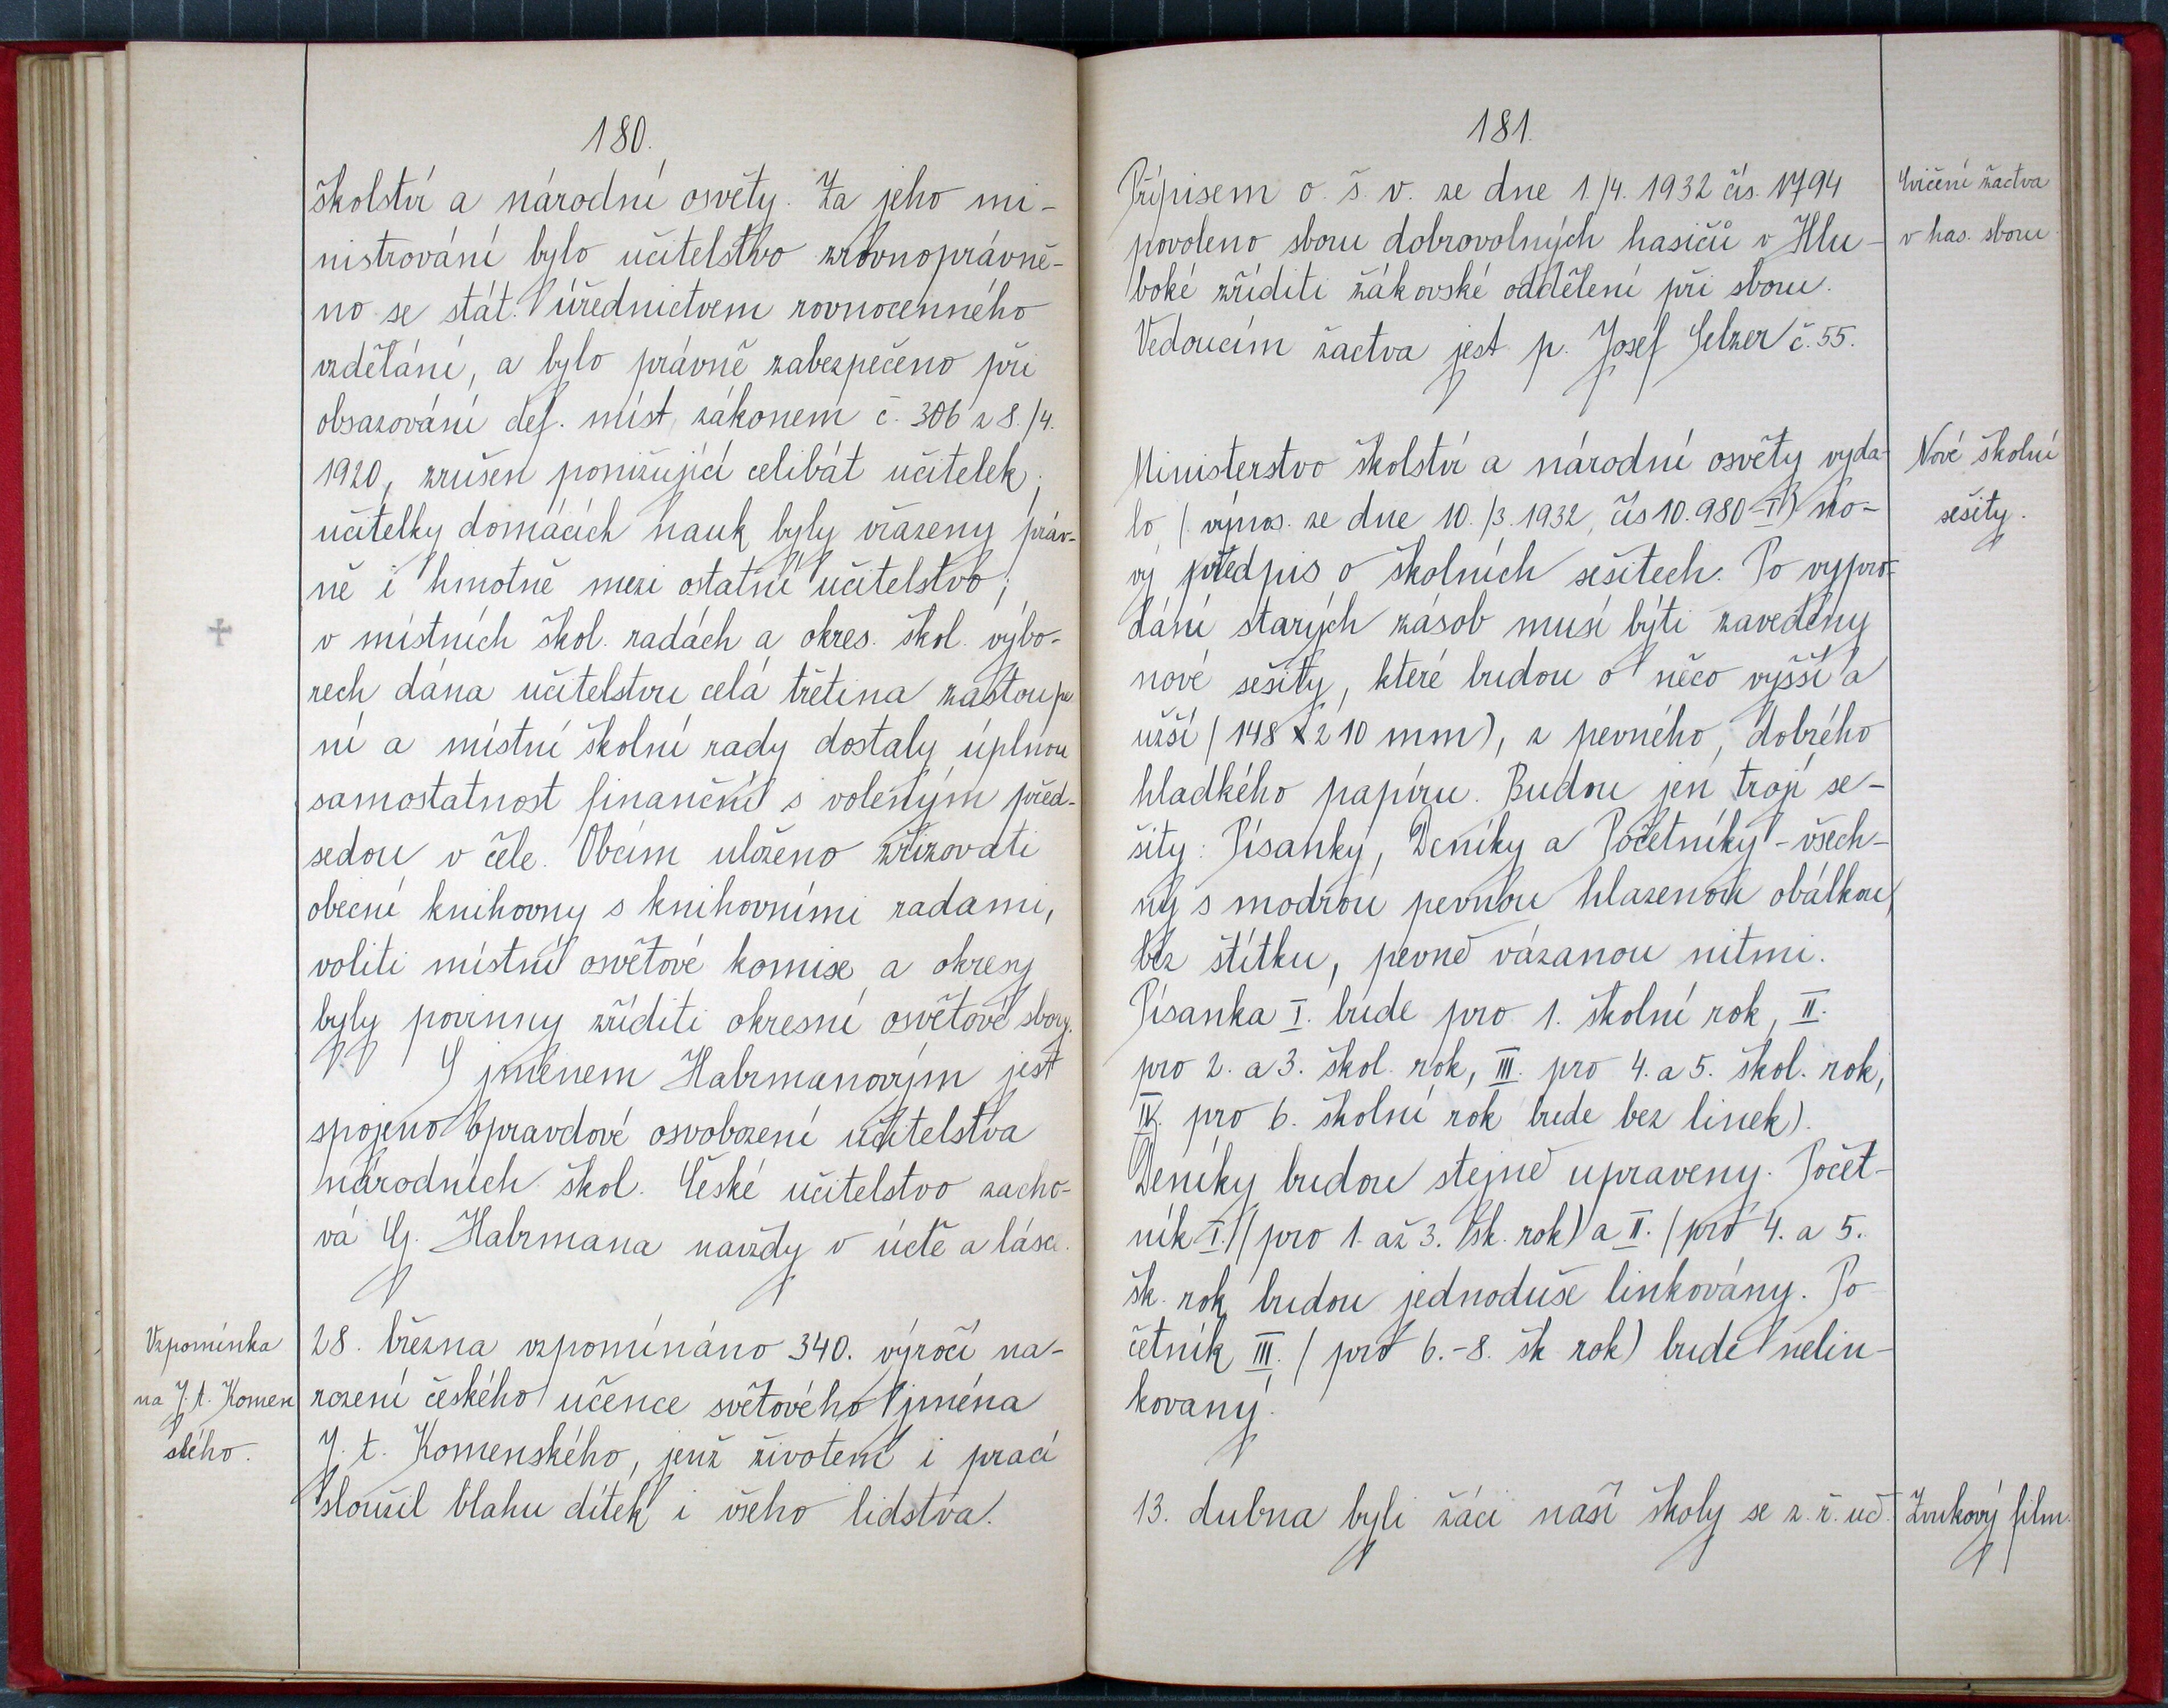 180.
školství a národní osvěty. Za jeho mi-
nistrování bylo učitelstvo zrovnoprávně-
no se stát. úřednictvem rovnocenného
vzdělání, a bylo právně zabezpečeno při
obsazování def. míst, zákonem č. 306 z 8./4.
1920, zrušen ponižující celibát učitelek;
učitelky domácích nauk byly vřazeny práv-
ně i hmotně mezi ostatní učitelstvo;
v místních škol. radách a okres. škol. výbo-
rech dána učitelstvu celá třetina zastoupe
ní a místní školní rady dostaly úplnou
samostatnost finanční s voleným před-
sedou v čele. Obcím uloženo zřizovati
obecní knihovny s knihovními radami,
voliti místní osvětové komise a okresy
byly povinny zříditi okresní osvětové sbory.
S jménem Habrmanovým jest
spojeno opravdové osvobození učitelstva
národních škol. České učitelstvo zacho-
vá G. Habrmana navždy v úctě a lásce.
Vzpomínka
na J. A. Komen
ského.
28. března vzpomínáno 340. výročí na-
rození českého učence světového jména
J. A. Komenského, jenž životem i prací
sloužil blahu dítek i všeho lidstva.
181.
Přípisem o. š. v. ze dne 1./4. 1932 čís. 1794
povoleno sboru dobrovolných hasičů v Hlu-
boké zříditi žákovské oddělení při sboru.
Vedoucím žactva jest p. Josef Selzer č. 55.
Cvičení žactva
v has. sboru
Ministerstvo školství a národní osvěty vyda-
lo (výnos. ze dne 10./3. 1932, čís 10.980-I) no-
vý předpis o školních sešitech. Po vypro-
dání starých zásob musí býti zavedeny
nové sešity, které budou o něco vyšší a
užší (148 x 210 mm), z pevného, dobrého
hladkého papíru. Budou jen trojí se-
šity: Písanky, Deníky a Početníky - všech-
ny s modrou pevnou hlazenou obálkou,
bez štítku, pevně vázanou nitmi.
Písanka I. bude pro 1. školní rok, II.
pro 2. a 3. škol. rok, III. pro 4. a 5. škol. rok,
IV. pro 6. školní rok bude bez linek).
Deníky budou stejně upraveny. Počet-
ník I. (pro 1. až 3. šk. rok) a II. (pro 4. a 5.
šk. rok budou jednoduše linkovány. Po
četník III. (pro 6.-8. šk rok) bude nelin-
kovaný.
Nové školní
sešity.
13. dubna byli žáci naší školy se z. ř. uč.
Zvukový film.